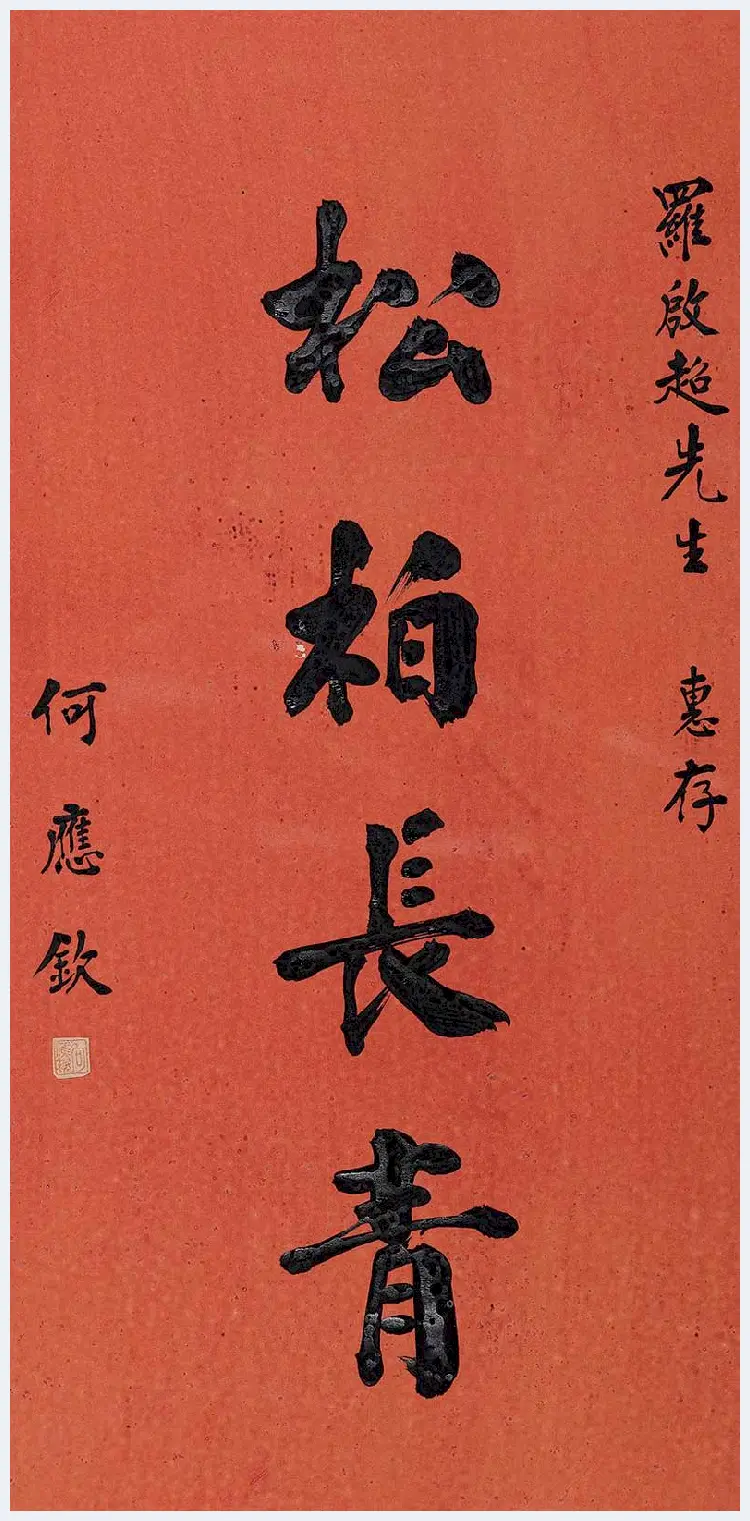 羅啟超先生 惠存
松柏長青
何應欽